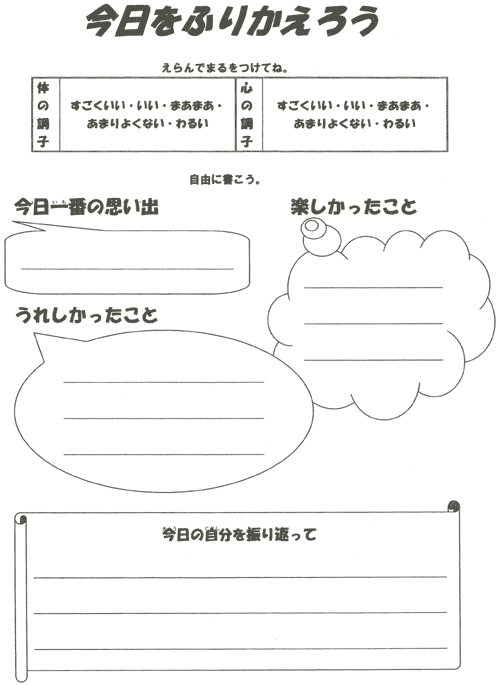 今日をふりかえろう
えらんでまるをつけてね。
体の調子
すごくいい・いい・まあまあ・
あまりよくない・わるい
心の調子
すごくいい・いい・まあまあ・
あまりよくない・わるい
自由に書こう。
今日一番の思い出
楽しかったこと
うれしかったこと
今日の自分を振り返って